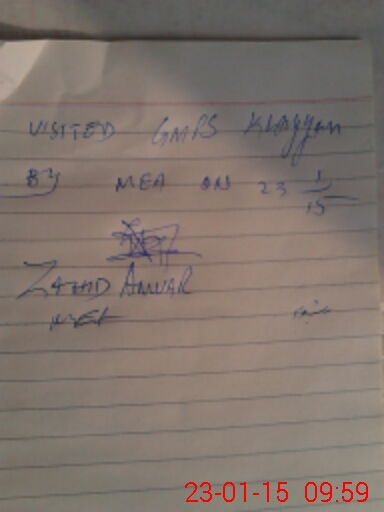 VISITED GMPS Klayyan
BY MEA ON 23 1/15
ZAHID ANWAR
MEA
23-01-15 09:59